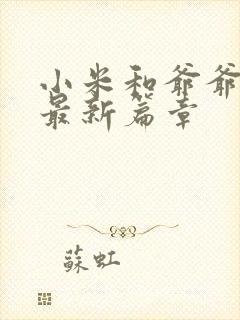 小米和爷爷
最新篇章
蘇虹